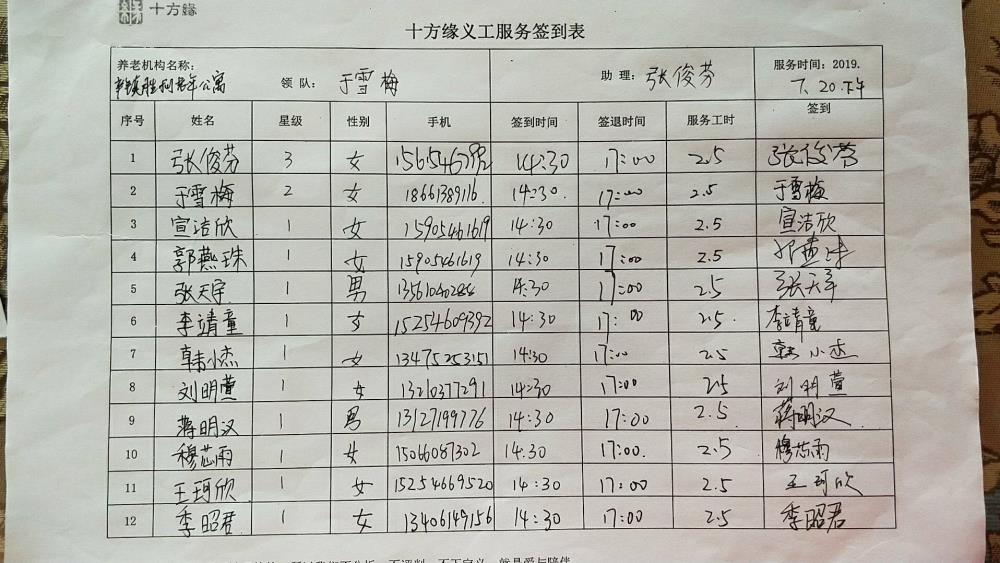 十方缘
十方缘义工服务签到表
养老机构名称: 领 队: 于雪梅 助 理: 张俊芬 服务时间: 2019.
胜利老年公寓 7. 20.下午
序号 姓名 星级 性别 手机 签到时间 签退时间 服务工时 签到
1 张俊芬 3 女 14:30 17:00 2.5 张俊芬
2 于雪梅 2 女 18661389116 14:30 17:00 2.5 于雪梅
3 宣洁欣 1 女 15905461619 14:30 17:00 2.5 宣洁欣
4 郭燕珠 1 女 15905461619 14:30 17:00 2.5 郭燕珠
5 张天宇 1 男 14:30 17:00 2.5 张天宇
6 李靖童 1 女 15254609392 14:30 17:00 2.5. 李靖童
7 韩小杰 1 女 13475253151 14:30 17:00 2.5 韩小杰
8 刘明萱 1 女 13210377291 14:30 17:00 25 刘明萱
9 蒋明汉 1 男 13127199776 14:30 17:00 2.5. 蒋明汉
10 穆芯雨 1 女 15066087302 14:30 17:00. 2.5 穆芯雨
11 王珂欣 1 女 15254669520 14:30 17:00 2.5 王珂欣
12 季昭君 1 女 13406149156 14:30 17:00 2.5 季昭君
就是爱与陪伴